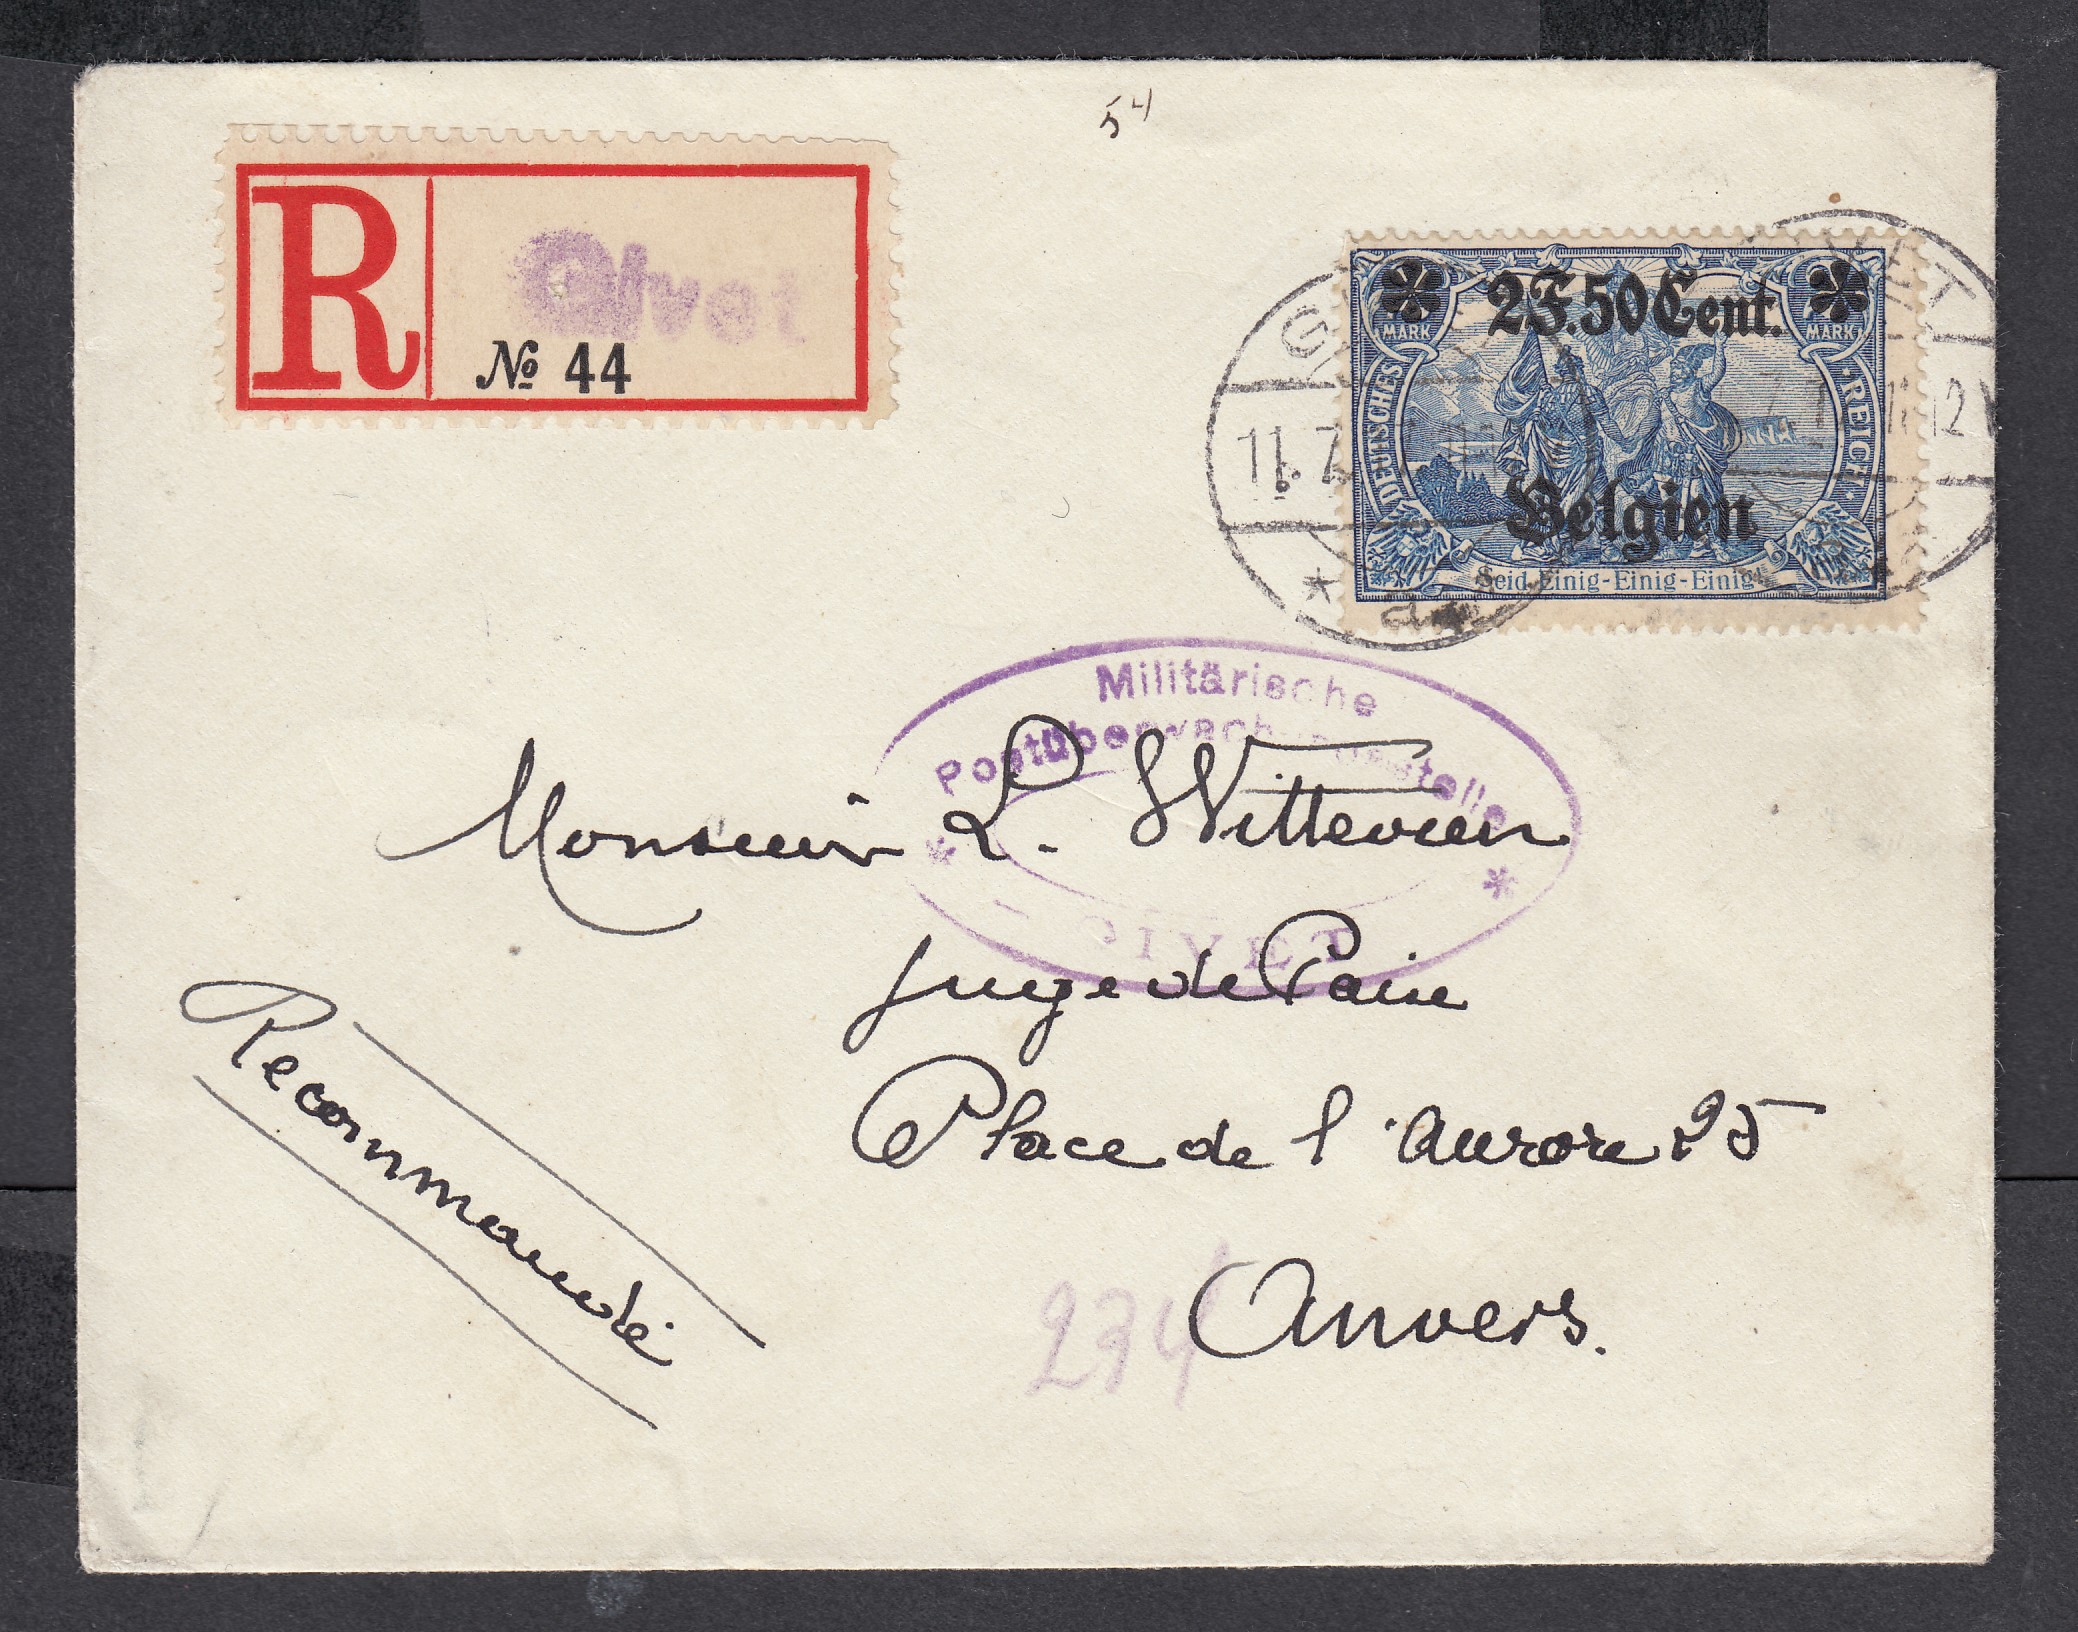 54
R
Givet
№ 44
GIVET
11.7.
2 F. 50 Cent.
MARK MARK
DEUTSCHES REICH
Belgien
Seid Einig-Einig-Einig!
Militärische
Postüberwachungsstelle
* *
- GIVET
Monsieur L. Witteveen
Juge de Paix
Place de l'Aurore 25
Anvers.
Recommandé
234